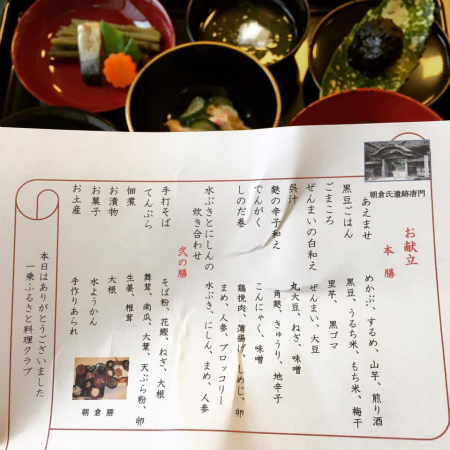 朝倉氏遺跡唐門
お献立
本膳
あえませ めかぶ、するめ、山芋、煎り酒
黒豆ごはん 黒豆、うるち米、もち米、梅干
ごまころ 里芋、黒ゴマ
ぜんまいの白和え ぜんまい、大豆
呉汁 丸大豆、ねぎ、味噌
麩の辛子和え 角麩、きゅうり、地辛子
でんがく こんにゃく、味噌
しのだ巻 鶏挽肉、薄揚げ、しめじ、卵
まめ、人参、ブロッコリー
水ぶきとにしんの 水ぶき、にしん、まめ、人参
炊き合わせ
弐の膳
手打そば そば粉、花鰹、ねぎ、大根
てんぷら 舞茸、南瓜、大葉、天ぷら粉、卵
佃煮 生姜、椎茸
お漬物 大根
お菓子 水ようかん
お土産 手作りあられ
朝倉膳
本日はありがとうございました
一乗ふるさと料理クラブ